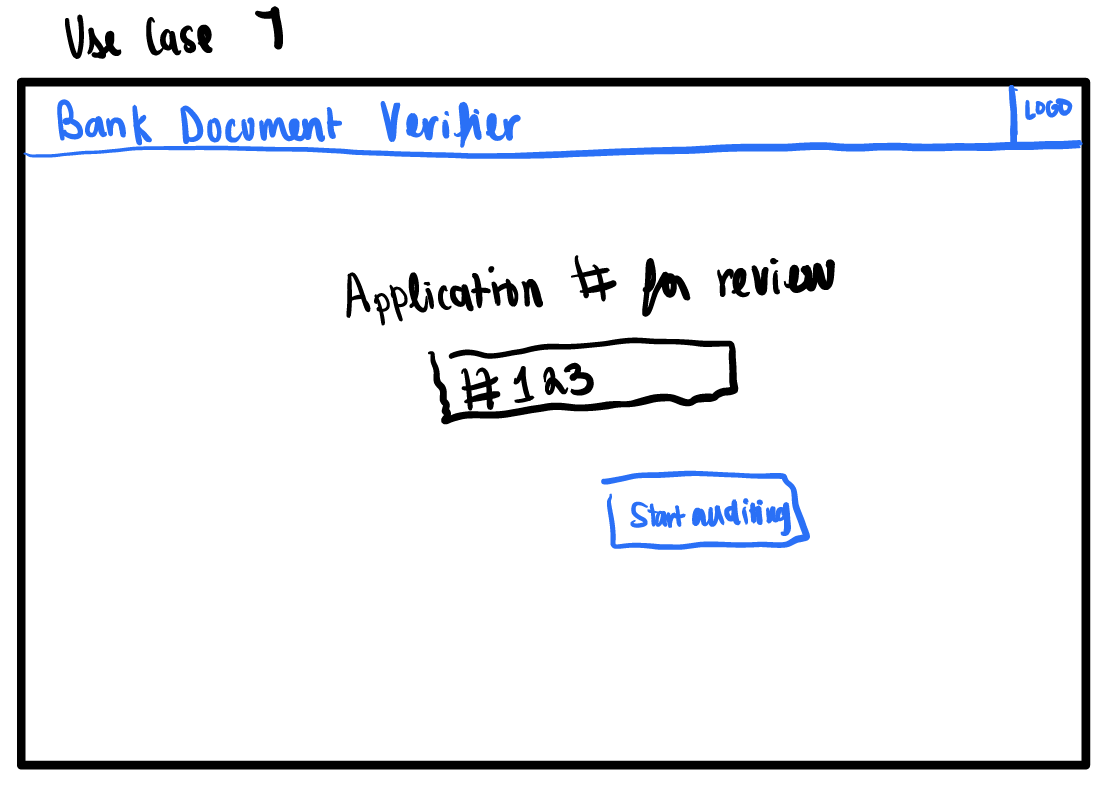 Use Case 7
Bank Document Verifier
LOGO
Application # for review
#123
Start auditing